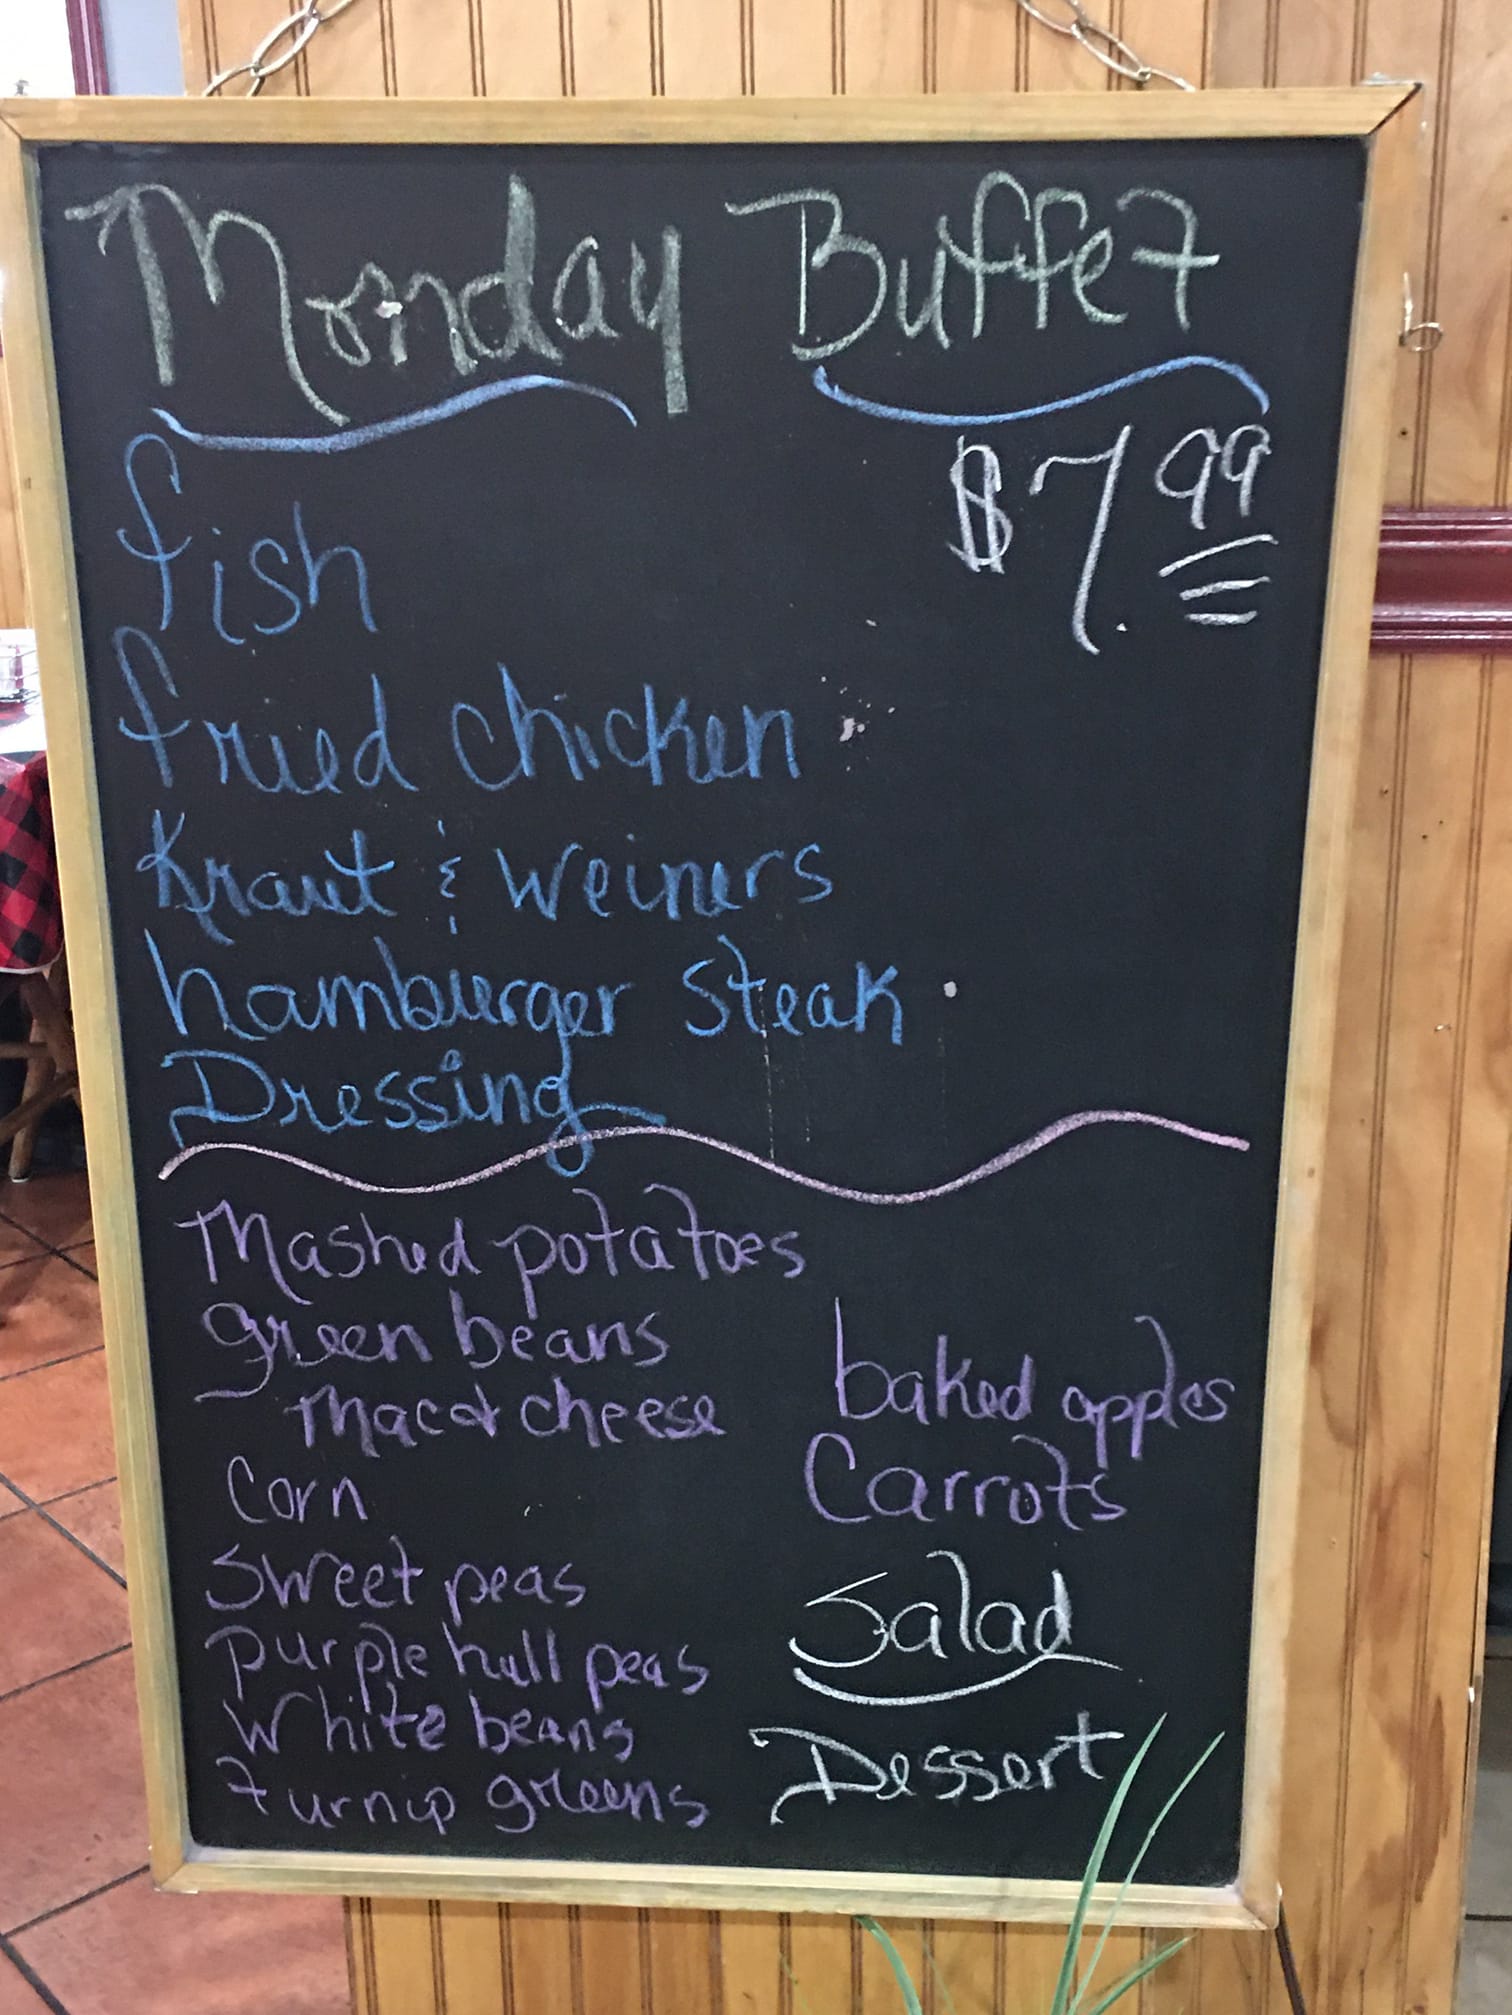 Monday Buffet
$7.99
fish
fried chicken
Kraut & weiners
hamburger steak
Dressing
Mashed potatoes
green beans
Mac & cheese
Corn
Sweet peas
purple hull peas
White beans
turnip greens
baked apples
Carrots
Salad
Dessert